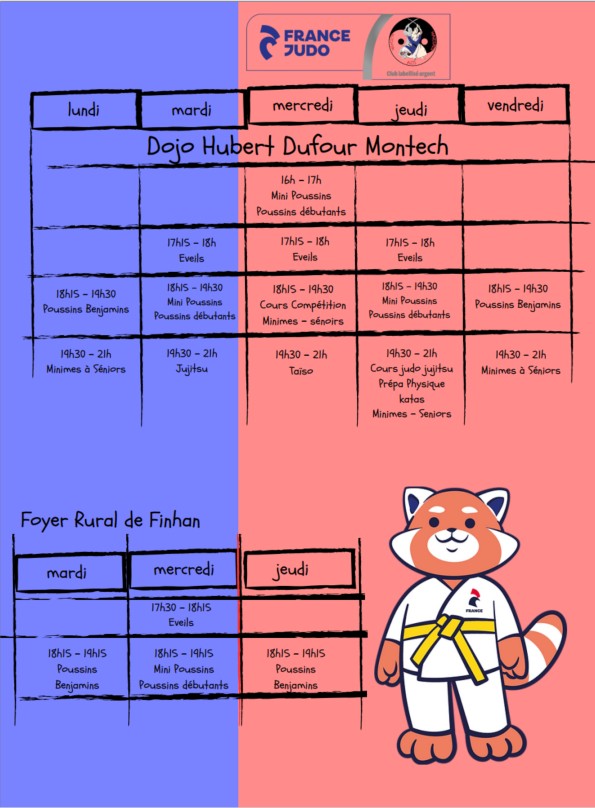 FRANCE
JUDO
Club labellisé argent
lundi
mardi
mercredi
jeudi
vendredi
Dojo Hubert Dufour Montech
16h - 17h
Mini Poussins
Poussins débutants
17h15 - 18h
Eveils
17h15 - 18h
Eveils
17h15 - 18h
Eveils
18h15 - 19h30
Poussins Benjamins
18h15 - 19h30
Mini Poussins
Poussins débutants
18h15 - 19h30
Cours Compétition
Minimes - sénoirs
18h15 - 19h30
Mini Poussins
Poussins débutants
18h15 - 19h30
Poussins Benjamins
19h30 - 21h
Minimes à Séniors
19h30 - 21h
Jujitsu
19h30 - 21h
Taïso
19h30 - 21h
Cours judo jujitsu
Prépa Physique
katas
Minimes - Seniors
19h30 - 21h
Minimes à Séniors
Foyer Rural de Finhan
mardi
mercredi
jeudi
17h30 - 18h15
Eveils
18h15 - 19h15
Poussins
Benjamins
18h15 - 19h15
Mini Poussins
Poussins débutants
18h15 - 19h15
Poussins
Benjamins
FRANCE